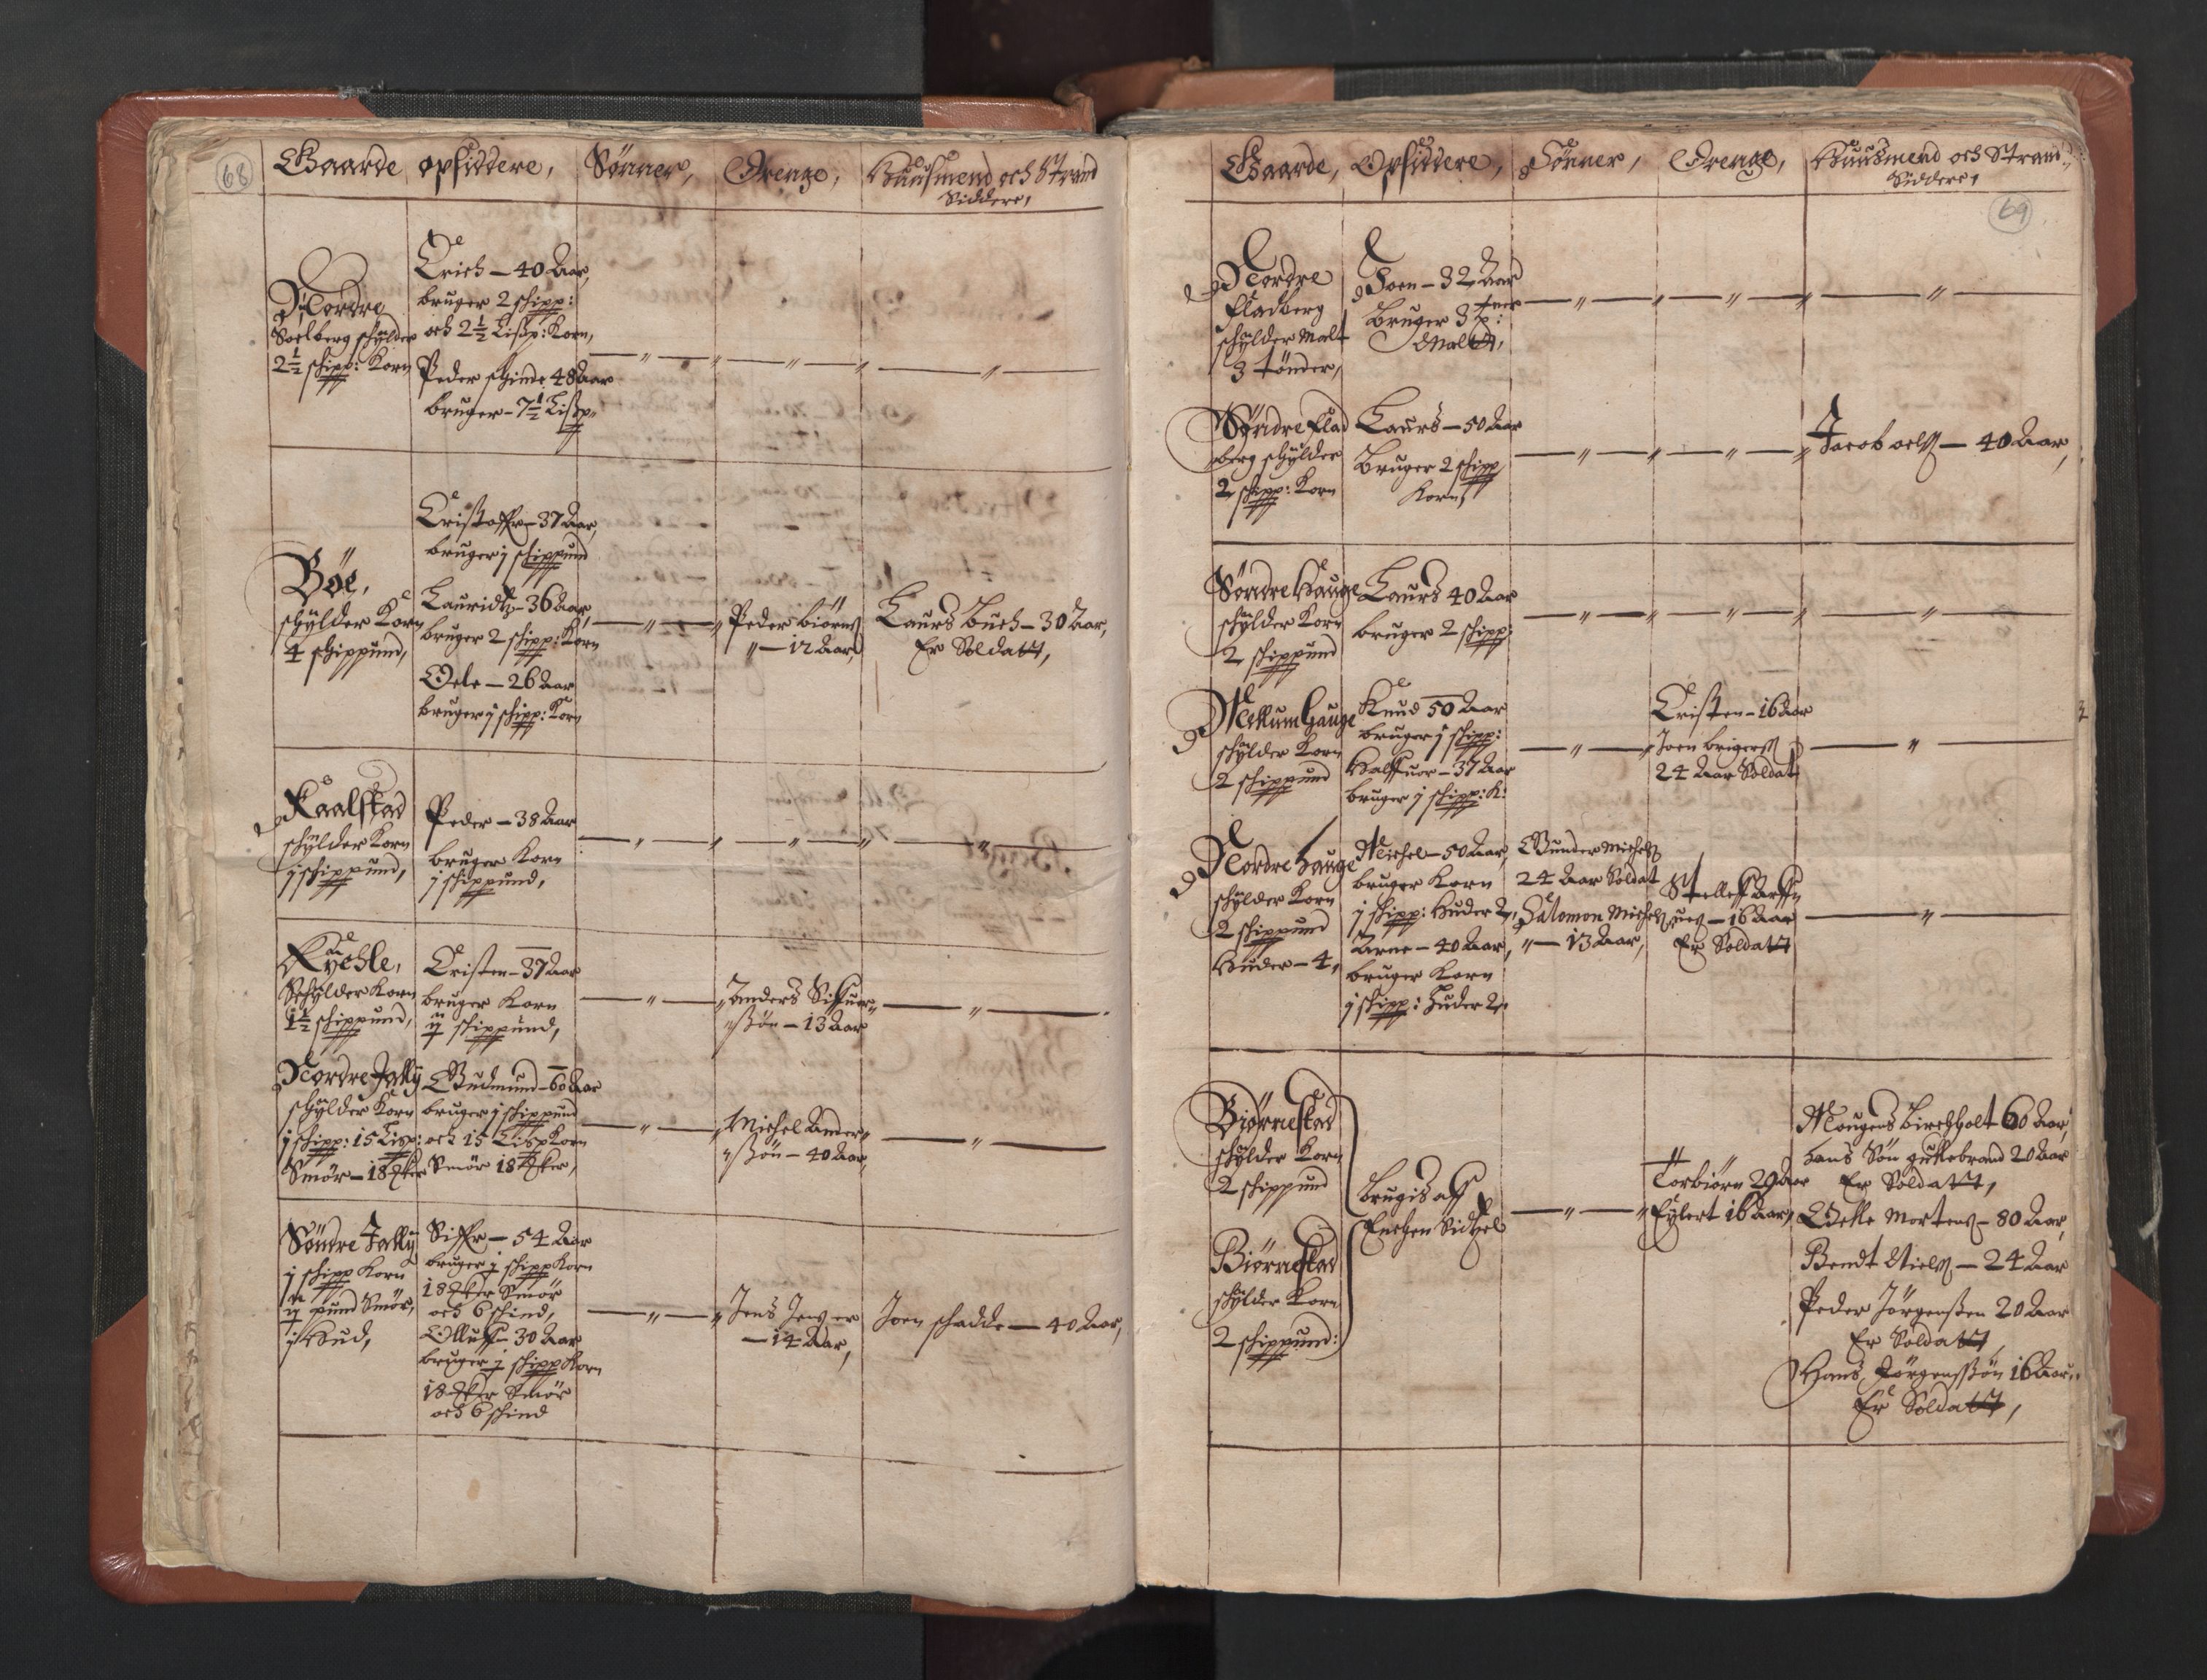 68
Gaarde
opsiddere,
Sønner,
Drenge,
Huusmend och Strand
Siddere,
Nordre
Soelberg schylder
2½ schipp: Korn
Erich — 40 Aar,
bruger 2 schipp:
och 2½ Lisp: Korn,
Peder schinde 48 Aar
bruger — 7½ Lisp
Bøe,
schylder Korn
4 schippund,
Cristoffer — 37 Aar,
bruger j schippund
Lauridtz — 36 Aar,
bruger 2 schipp: Korn
Oele — 26 Aar
bruger j schipp: Korn
Peder biørns
— 12 Aar,
Laurs Buch — 30 Aar,
Er Soldatt,
Kaalstad
schylder Korn
j schippund,
Peder — 38 Aar
bruger Korn
j schippund,
Schylder Korn
1½ schippund,
Cristen — 37 Aar
bruger Korn
schippund,
Anders Siffuer
ßøn — 13 Aar
Nordre Jally
schylder Korn
j schipp: 15 Lisp:
Smør — 18 
Gudmund — 60 Aar
bruger j schippund
och 15 Lisp Korn
Smør 18 
Michel Ander
ßøn — 40 Aar,
Søndre Jally
j schipp Korn
pund Smør,
j Hud,
Siffr — 54 Aar
bruger schipp Korn
18 Smør
och 6 schind,
Olluff — 30 Aar
bruger schipp Korn
18 Smør
och 6 schind
Jens
— 14 Aar,
Joen schadde — 40 Aar,
Gaarde,
Opsiddere,
Sønner,
Drenge,
Huusmend och Strand
Siddere,
69
Nordre
Fladberg
schylder Malt
3 tønder,
Joen — 32 Aar
Bruger 3
Malt,
Syndre Flad
berg schylder
2 schipp: Korn
Laurs — 50 Aar
Bruger 2 schipp
Korn,
Jacob oels — 40 Aar,
Søndre Hauge
schylder Korn
2 schippund
Laurs 40 Aar
bruger 2 schipp:
Mellum Hauge
schylder Korn
2 schippund
Knud 50 Aar
bruger j schipp:
Halffuor — 37 Aar
bruger j schipp: K:
Cristen — 16 Aar
Joen
24 Aar Soldat
Nordre Hauge
schylder Korn
2 schippund
Huder — 4,
Michel — 50 Aar,
bruger Korn
j schipp: Huder 2,
Arne — 40 Aar,
bruger Korn
j schipp: Huder 2
Gunder Michels
24 Aar Soldat
Salomon Michels
— 13 Aar,
— 16 Aar
Er Soldatt
Biørnestad
schylder Korn
2 schippund
Biørnestad
schylder Korn
2 schippund:
brugis aff
Enchen Sidtzel
Torbiørn 29 Aar
Eylert 16 Aar,
Mougens Birchholt 60 Aar,
hans Søn gullebrand 20 Aar
Er Soldatt,
Mortens — 80 Aar,
Bendt Niels — 24 Aar
Peder Jørgenßen 20 Aar
Er Soldatt,
Hans Jørgensßøn 16 Aar
Er Soldatt,